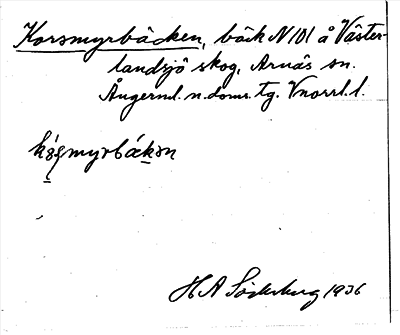 Korsmyrbäcken, bäck N101 å Väster-
landsjö skog, Arnäs sn.
Ångerml. n. doms. tg. Vnorrl. l.
myrbäkən
H A Söderberg 1936